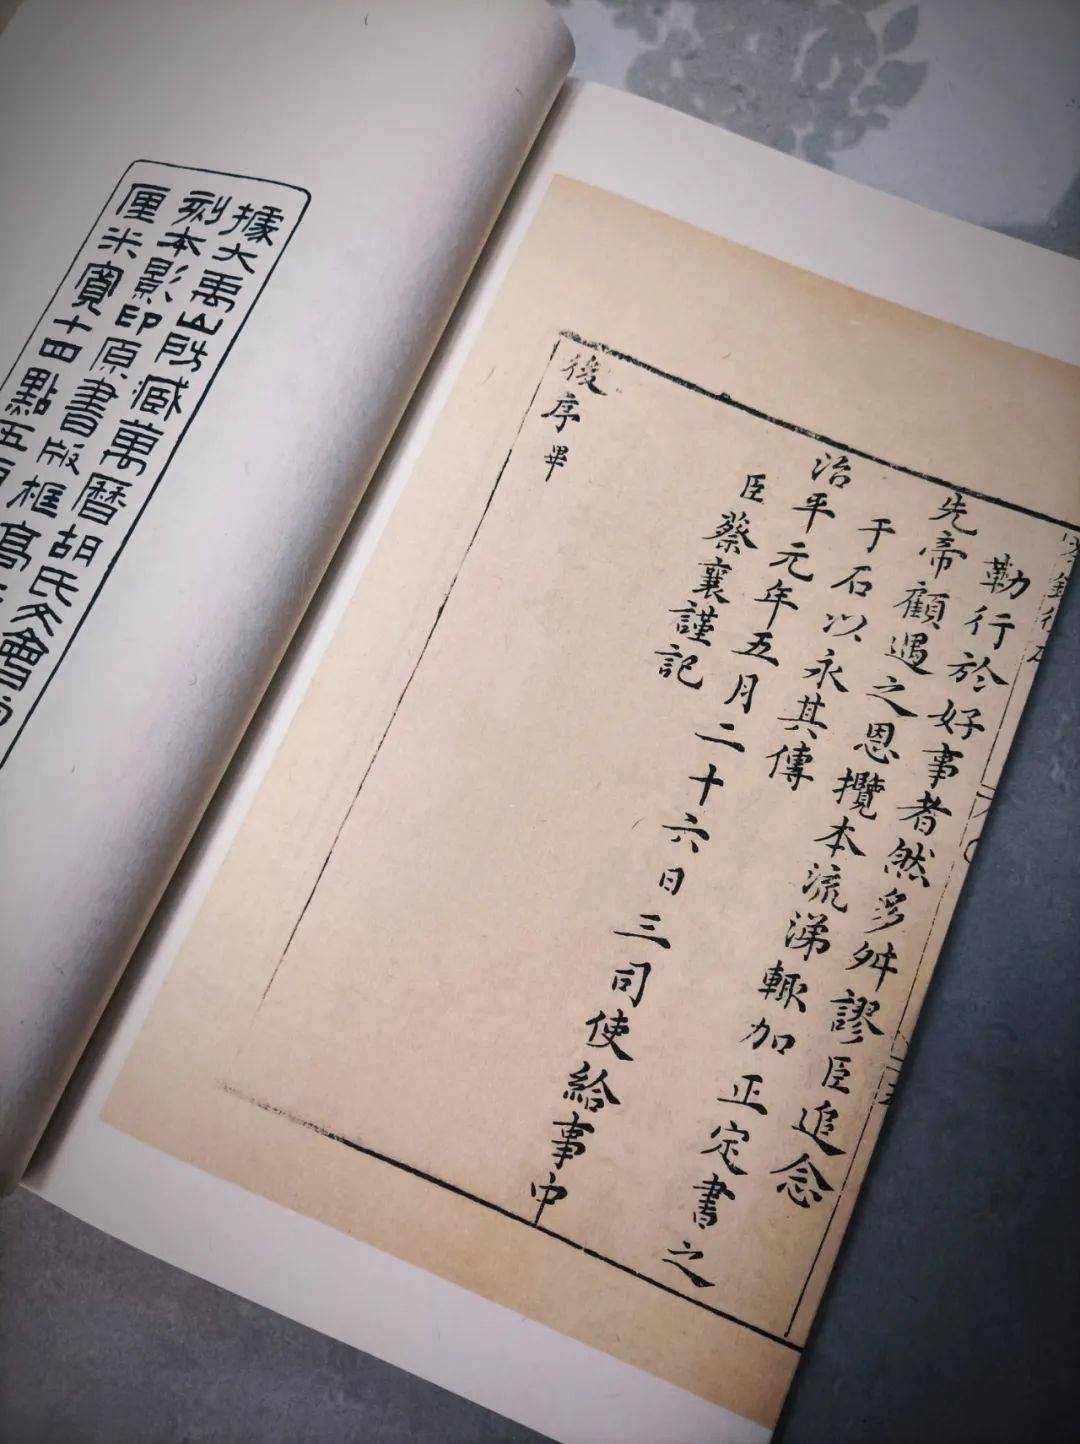 勒行於好事者然多舛謬臣追念
先帝顧遇之恩攬本流涕輒加正定書之
于石以永其傳
治平元年五月二十六日三司使給事中
臣蔡襄謹記
後序畢
據大禹山所藏萬曆胡氏文會
刻本影印原書版框高
厘米寬十四點五